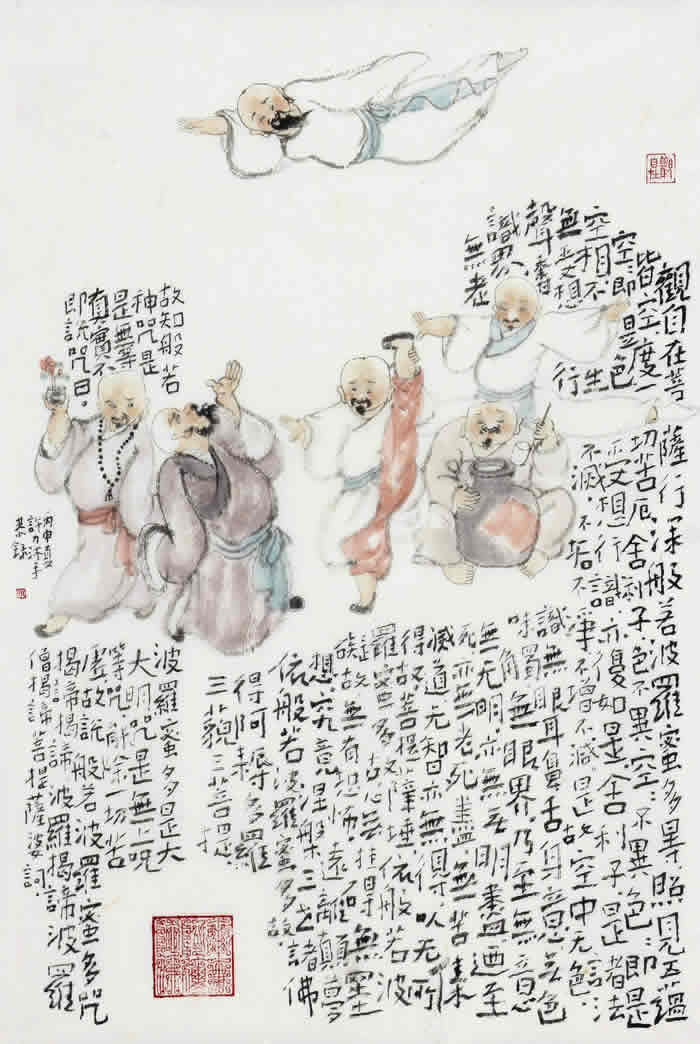 觀自在菩薩行深般若波羅蜜多時照見五蘊
皆空度一切苦厄舍利子色不異空:不異色:即是
空:即是色受想行識亦復如是舍利子是諸法
空相不生不滅不垢不淨不增不減是故空中无色
無受想行識無眼耳鼻舌身意无色
聲香味觸無眼界乃至無意
識界無无明亦無无明盡乃至
無老死亦無老死盡無苦集
滅道无智亦無得以无所
得故菩提薩埵依般若波
羅蜜多故心无挂碍無罣
礙故無有恐怖遠離顛夢
想究竟涅槃三世諸佛
依般若波羅蜜多故
得阿耨多羅
三藐三菩提
故知般若波羅蜜多是大
神咒是大明咒是無上咒
是無等等咒能除一切苦
真實不虛故說般若波羅蜜多咒
即說咒曰。揭諦揭諦波羅揭諦波羅
僧揭諦菩提薩婆訶
丙申夏
沐手
恭錄